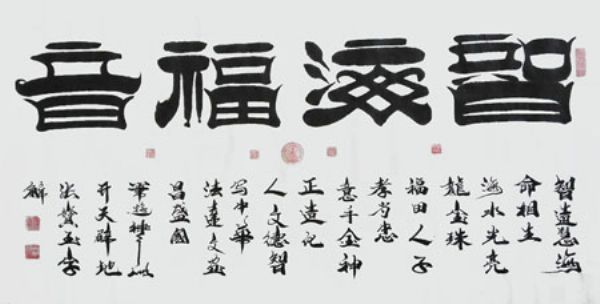 智海福音
智造慧海
命相生
海水光亮
龍宝珠
福田人子
孝為忠
意千金神
正造化
人文德智
写中華
法達文
昌盛國
筆神
开天辟地
法玉字